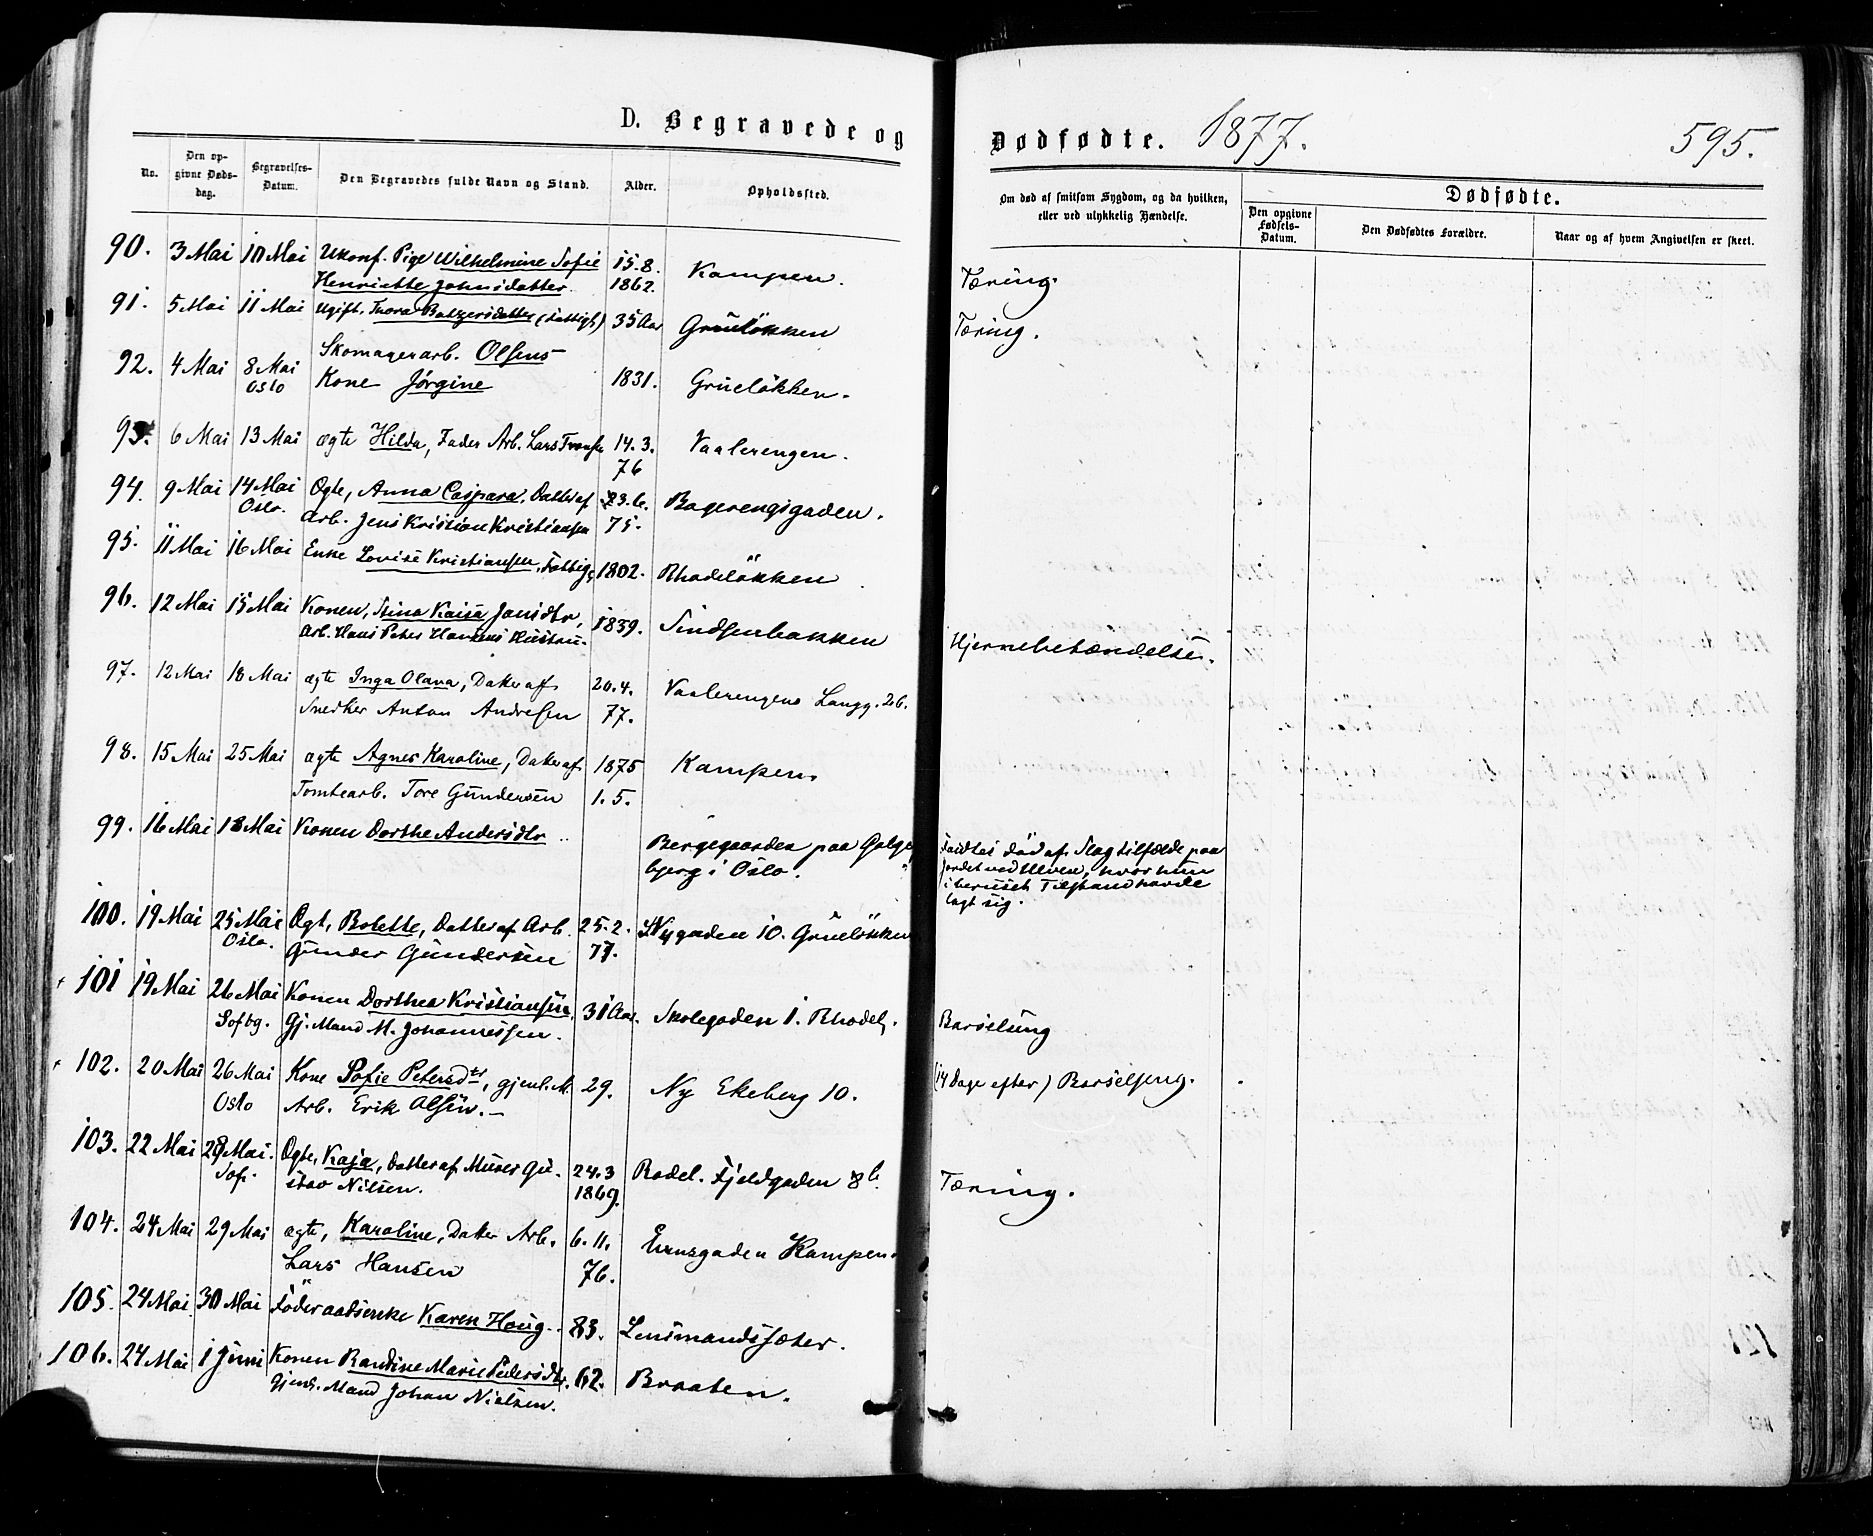 D. Begravede og Dødfødte. 1877. 595.
No.
Den opgivne Dødsdag.
Begravelses-Datum.
Den Begravedes fulde Navn og Stand.
Alder.
Opholdssted.
Om død af smitsom Sygdom, og da hvilken, eller ved ulykkelig Hændelse.
Dødfødte.
Den opgivne Fødsels-Datum.
Den Dødfødtes Forældre.
Naar og af hvem Angivelsen er skeet.
90. 3 Mai 10 Mai Ukonf. Pige Wilhelmine Sofie 15.8. Kampen. Tæring.
Henriette Johnsdatter. 1862.
91. 5 Mai 11 Mai Ugift. Thora Baltzersdatter (Fattigl) 35 Aar Grüeløkken Tæring.
92. 4 Mai 8 Mai Skomagerarb. Olsens 1831. Grüeløkken.
Oslo Kone Jørgine
93. 6 Mai 13 Mai ægte Hilda, Fader Arb. Lars 14.3. Vaalerengen.
76
94. 9 Mai 14 Mai Ægte, Anna Caspara, Datter af 23.6. Bagerengsgaden.
Oslo. Arb. Jens Kristian Kristiansen 75.
95. 11 Mai 16 Mai Enke Lovise Kristiansen, Fattigl 1802. Rhodeløkken
96. 12 Mai 15 Mai Konen, Stina Kaisa Jansdtr, 1839. Sindsenbakken Hjernebetændelse.
Arb. Hans Peter Hansens Hustru.
97. 12 Mai 18 Mai ægte Inga Olava, Datter af 20.4. Vaalerengens Langg. 26.
Snedker Anton Andresen 77.
98. 15 Mai 25 Mai ægte Agnes Karoline, Datter af 1875 Kampen.
Tomtearb. Tore Gundersen 1.5.
99. 16 Mai 18 Mai Konen Dorthe Andersdtr Bergegaarden paa Galge-
bjerg i Oslo. Fandtes død af Slagtilfælde paa
Jordet ved Ulven, hvor hun
i beruset Tilstand havde
lagt sig.
100. 19 Mai 25 Mai Ægt, Bolette, Datter af Arb. 25.2. Nygaden 10. Grüeløkken
Oslo. Gunder Gundersen 77.
101 19 Mai 26 Mai Konen Dorthea Kristiansen 31 Aar. Skolegaden 1. Rhodel. Barselseng
Sofbg. Gj. Mand M. Johannessen.
102. 20 Mai 26 Mai Kone Sofie Petersdtr, gjenl. M. 29. Ny Ekeberg 10. (14 Dage efter) Barselseng.
Oslo Arb. Erik Olsen.
103. 22 Mai 28 Mai. Ægte, Kaja, Datter af Murer Gu- 24.3 Rodel. Fjeldgaden 8b. Tæring.
Sof. stav Nilsen. 1869.
104. 24 Mai 29 Mai ægte, Karoline, Datter Arb. 6.11. Kampen.
Lars Hansen 76.
105. 24 Mai 30 Mai Føderaadsenke Karen Haug. 83. Lensmandssæter.
106. 24 Mai 1 Juni Konen Randine Marie Pedersdtr. 62. Braaten.
gjenl. Mand Johan Nielsen.